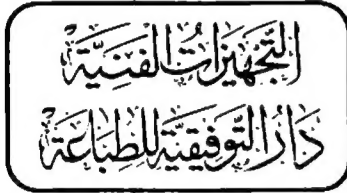 التَّجهيزَاتُ الفَنِيَّة
دَارُ التَّوفيقيَّة للطِّبَاعَة